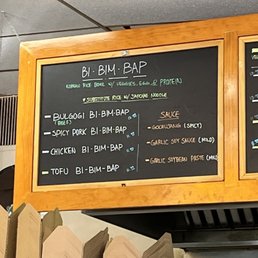 BI·BIM·BAP
KOREAN RICE BOWL w/ VEGGIES, EGG, & PROTEIN
* SUBSTITUTE RICE w/ JAPCHAE NOODLE
BULGOGI BI·BIM·BAP
(BEEF)
SPICY PORK BI·BIM·BAP
CHICKEN BI·BIM·BAP
TOFU BI·BIM·BAP
SAUCE
- GOCHUJANG (SPICY)
- GARLIC SOY SAUCE (MILD)
- GARLIC SOYBEAN PASTE (MILD)